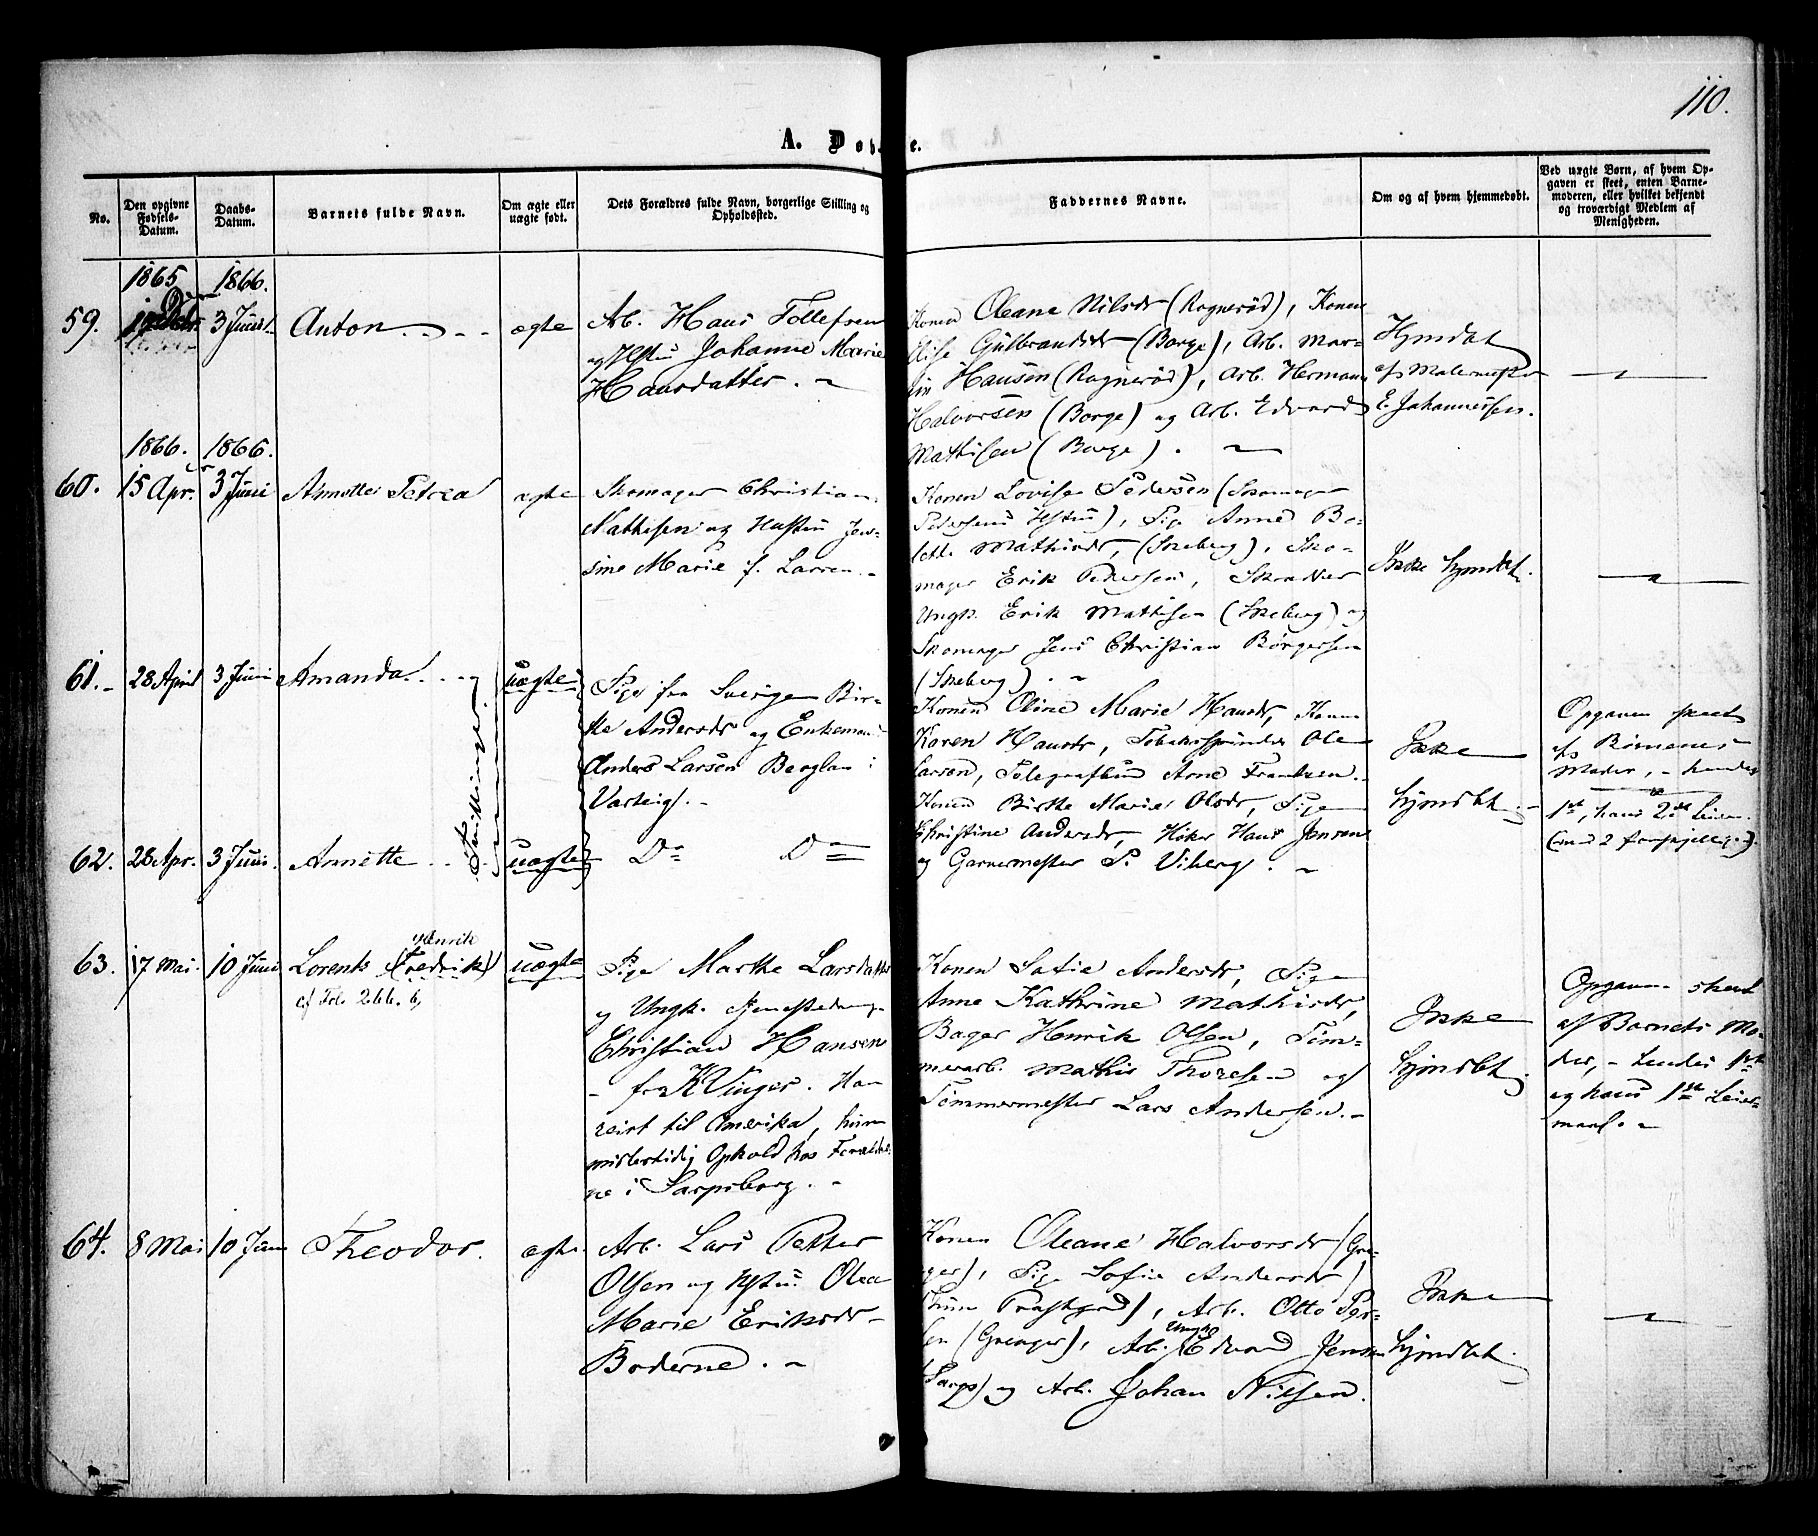 110.
A. Døbte.
No.
Den opgivne Fødsels-Datum.
Daabs-Datum.
Barnets fulde Navn.
Om ægte eller uægte født.
Dets Forældres fulde Navn, borgerlige Stilling og Opholdssted.
Faddernes Navne.
Om og af hvem hjemmedøbt.
Ved uægte Børn, af hvem Opgaven er skeet, enten Barnemoderen, eller hvilket bekjendt og troværdigt Medlem af Menigheden.
1865 1866.
59. 3 Juni Anton ægte
Arb. Hans Tollefsen
og Hstu Johanne Marie
Hansdatter.
Konen Oleane Nilsdr (Ragnerød), Konen
Elise Gulbrandsdr (Borge), Arb. Mar-
tin Hansen (Ragnerød), Arb. Herman
Halvorsen (Borge) og Arb. Edvard
Mathisen (Borge).
Hjmdøbt
af Malermester
E. Johannessen.
1866. 1866.
60. 15 Apr. 3 Juni Annette Petrea ægte
Skomager Christian
Mathisen og Hustru Jen-
sine Marie f. Larsen.
Konen Lovise Pedersen (Skomager
Pedersens Hstru), Pige Anne Bo-
lette Mathisdr, (Skeberg), Sko-
mager Erik Pedersen, Skrædder
Ungk. Erik Mathisen (Skeberg) og
Skomager Jens Christian Børgersen
(Skeberg).
Ikke hjmdøbt.
61. 28 April 3 Juni Amanda uægte
Tvillinger
Pige fra Sverige Bir-
the Andersdr og Enkemand
Anders Larsen Berglan i
Varteig.
Konen Oline Marie Hansdr, Konen
Karen Hansdr, Tobaksspinder Ole
Larsen, Telegrafbud Arne Frantzen.
Ikke
hjmdøbt.
Opgaven skeet
af Børnenes
Moder, hendes
1ste, hans 2det Leier.
(med 2 forskjellige).
62. 28 Apr. 3 Juni Annette uægte
Do Do
Konen Birthe Marie Olsdr, Pige
Christine Andersdr, Høker Hans Jensen
og Garvermester P. Viberg.
63. 17 Mai. 10 Juni Lorents (Fredrik) Henrik uægte
cf Fol. 266. 6,
Pige Marthe Larsdatter
og Ungk.
Christian Hansen
fra Kvinger. Han
reist til Amerika, hun
midlertidig Ophold hos Forældre-
ne i Sarpsborg.
Konen Sofie Andersdr, Pige
Anne Kathrine Mathisdr,
Bager Henrik Olsen, Tøm-
merarb. Mathis Thoresen og
Tømmermester Lars Andersen.
Ikke
hjmdøbt
Opgaven skeet
af Barnets Mo-
der, hendes 1ste
og hans 1ste Leier-
maal.
64. 8 Mai 10 Juni Theodor. ægte
Arb. Lars Petter
Olsen og Hstru Olea
Marie Eriksdr
Boderne.
Konen Oleane Halvorsdr (Gre-
ager), Pige Sofie Andersdr
(Thune Præstgrd), Arb. Otto Peder-
sen (Greager), Arb. Ungk. Edvard Jensen
(Sarps) og Arb. Johan Nilsen.
Ikke
hjmdøbt.